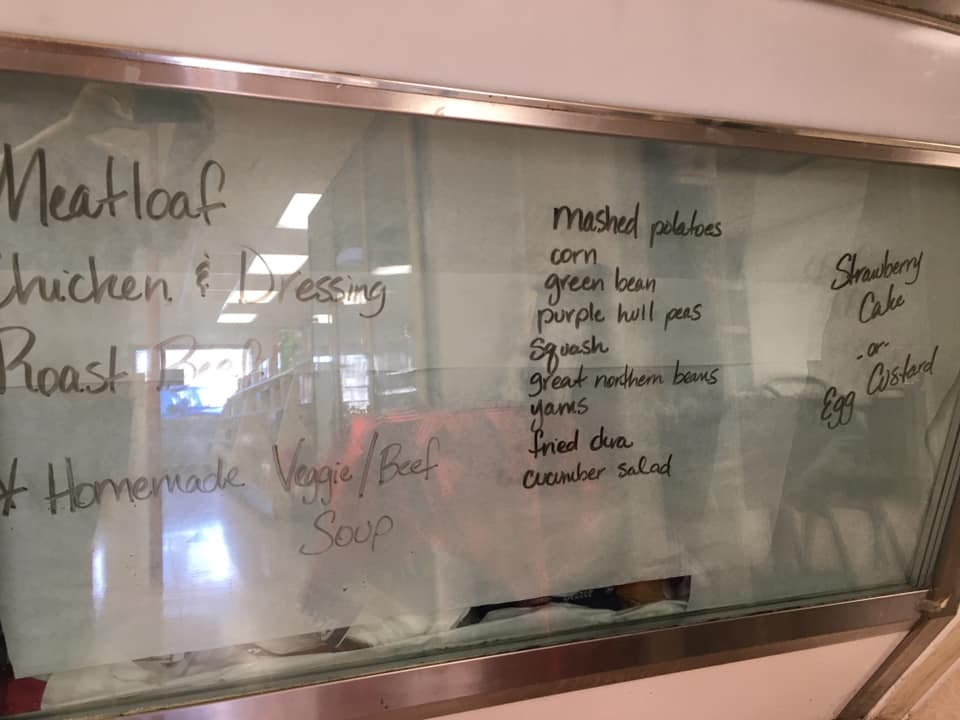 Meatloaf
Chicken & Dressing
Roast Beef
* Homemade Veggie/Beef
Soup
mashed potatoes
corn
green bean
purple hull peas
Squash
great northern beans
yams
fried okra
cucumber salad
Strawberry
Cake
-or-
Egg Custard